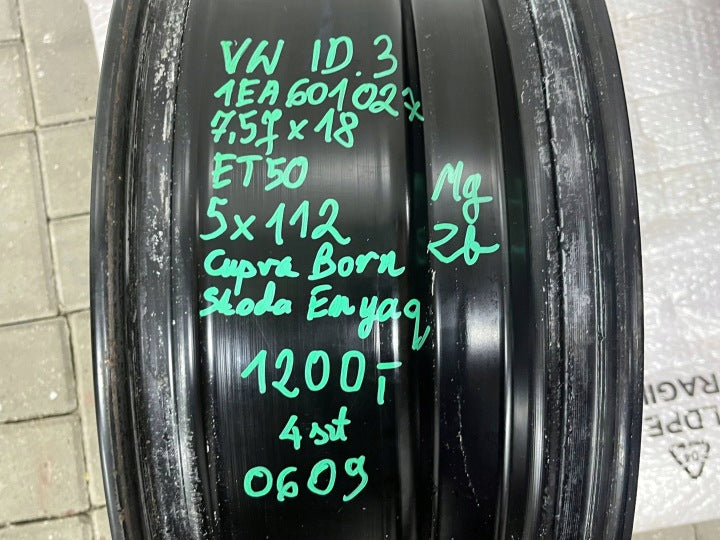 VW ID.3
1EA601027
7,5J x 18
ET50
5x112
Cupra Born
Skoda Enyaq
1200,-
4 szt
0609
Mg
LDPE